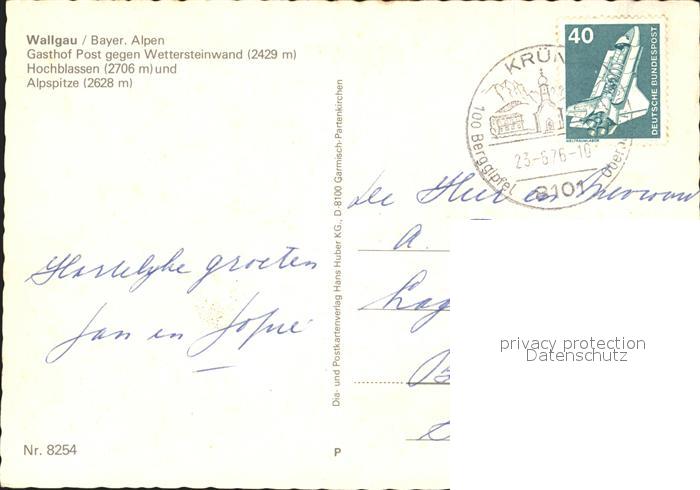 Wallgau / Bayer. Alpen
Gasthof Post gegen Wettersteinwand (2429 m)
Hochblassen (2706 m) und
Alpspitze (2628 m)
40
DEUTSCHE BUNDESPOST
WELTRAUMLABOR
KRÜN
100 Berggipfel
23-6.76-10
8101
Dia- und Postkartenverlag Hans Huber KG., D-8100 Garmisch-Partenkirchen
De Heer en Mevrouw
A.
Hartelijke groeten
Jan en Jopie
privacy protection
Datenschutz
Nr. 8254
P